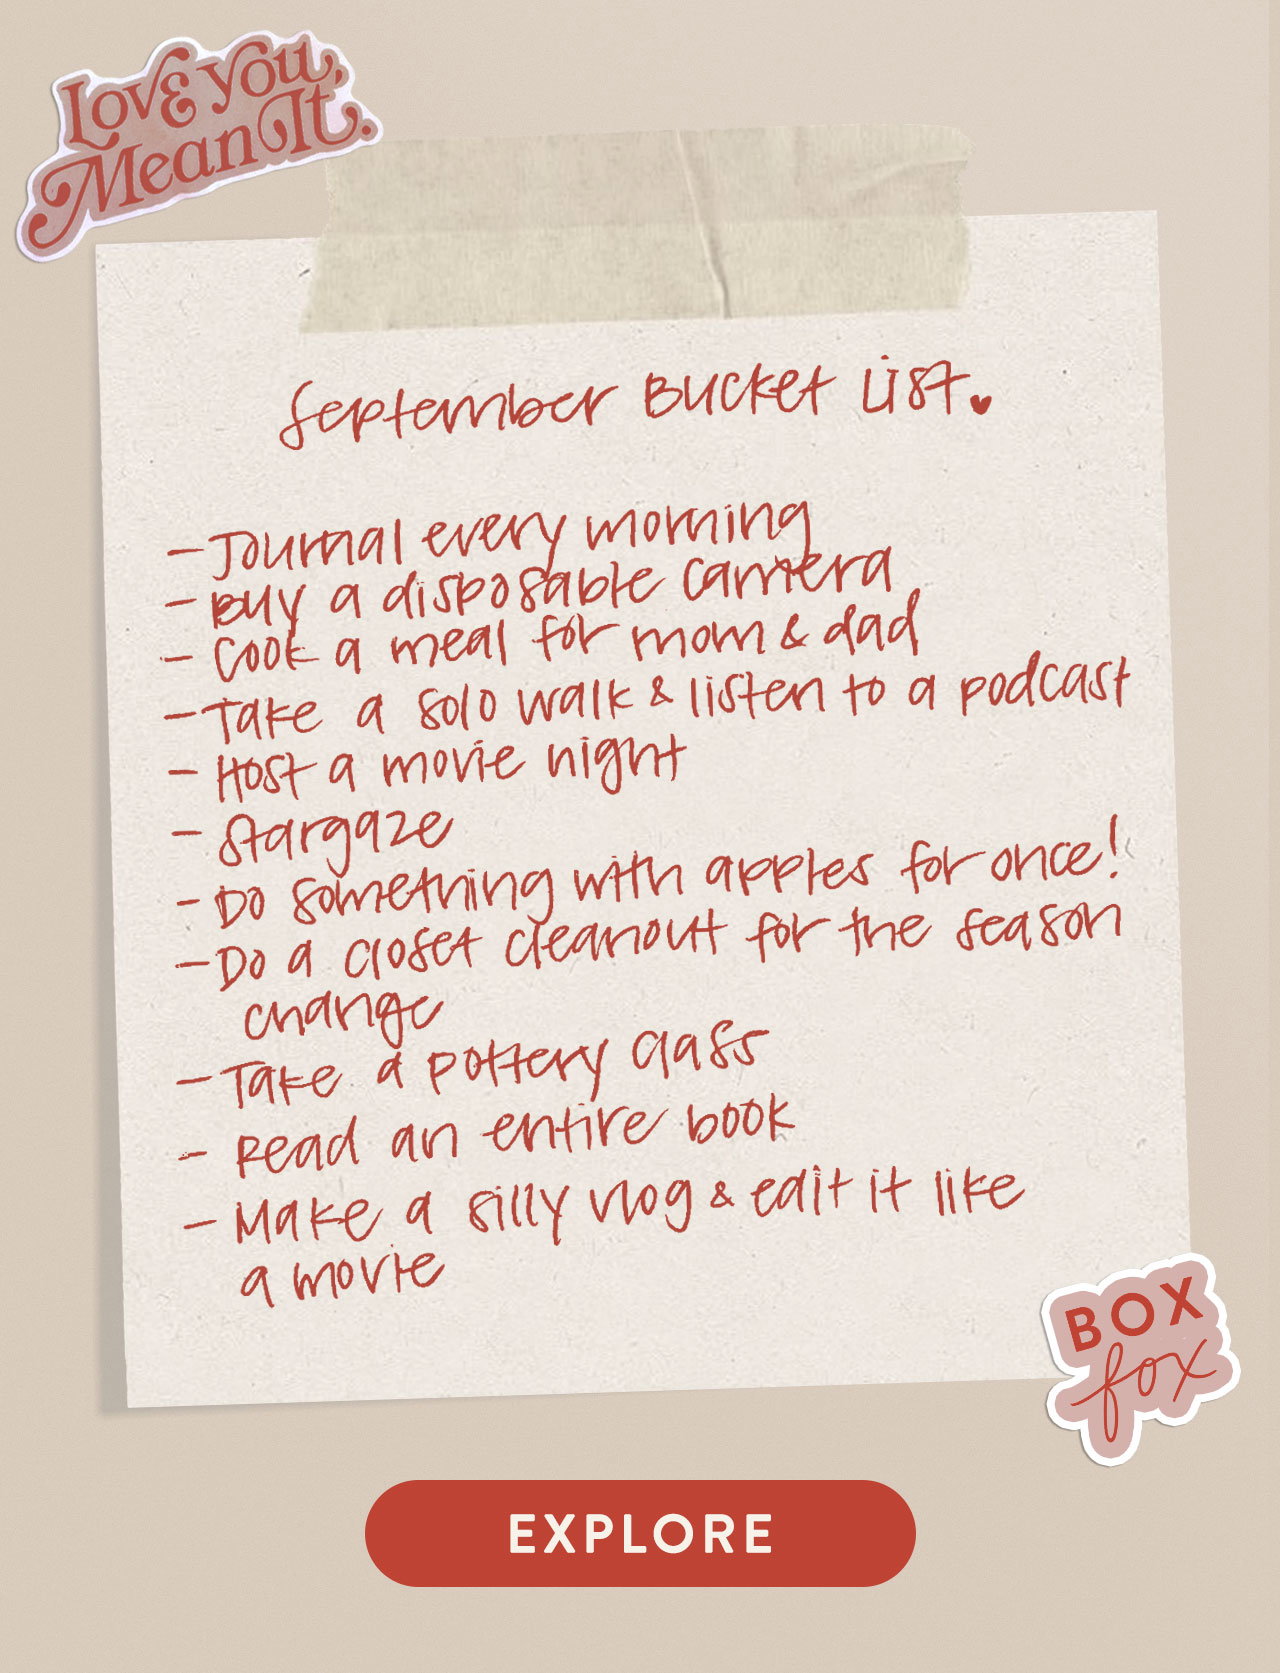 Love you,
Mean It.
September Bucket List.
- Journal every morning
- Buy a disposable camera
- Cook a meal for mom & dad
- Take a solo walk & listen to a podcast
- Host a movie night
- Stargaze
- Do something with apples for once!
- Do a closet cleanout for the season
change
- Take a pottery class
- Read an entire book
- Make a silly vlog & edit it like
a movie
BOX
fox
EXPLORE